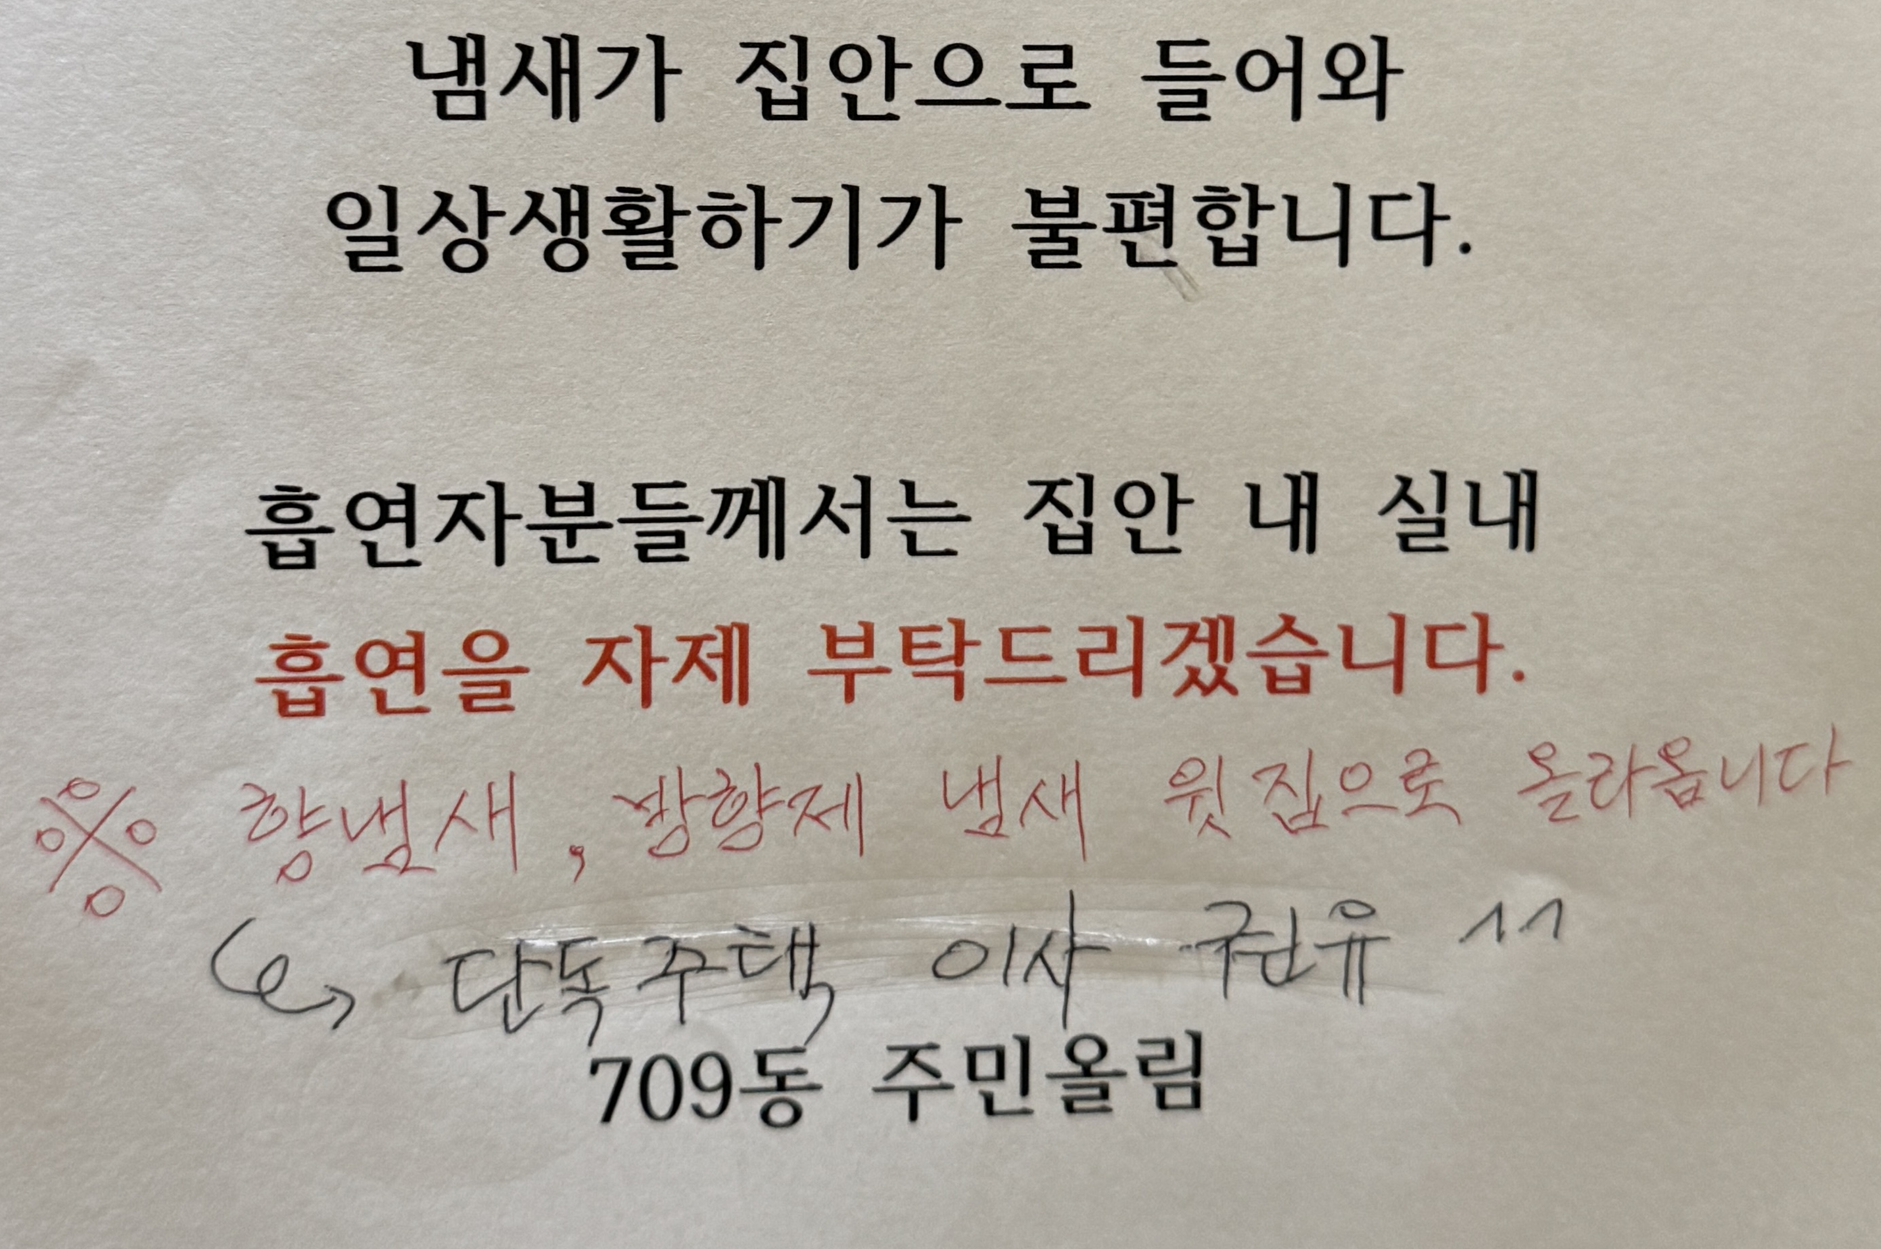 냄새가 집안으로 들어와
일상생활하기가 불편합니다.
흡연자분들께서는 집안 내 실내
흡연을 자제 부탁드리겠습니다.
※ 향냄새, 방향제 냄새 윗집으로 올라옵니다
↪ 단독주택 이사 권유 ^^
709동 주민올림